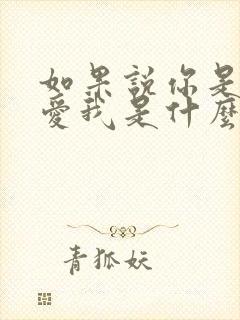 如果說你是
愛我是什麼
青狐妖